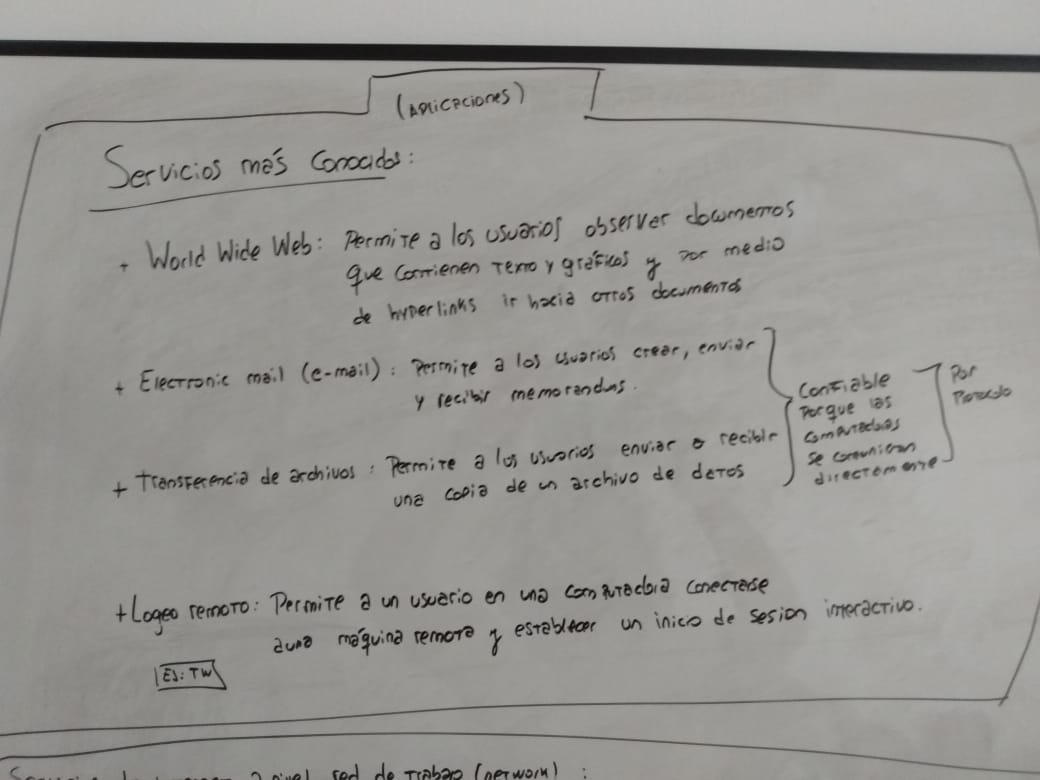 (Aplicaciones)
Servicios más Conocidos:
+ World Wide Web: Permite a los usuarios observar documentos
que contienen texto y gráficos y por medio
de hyperlinks ir hacia otros documentos
+ Electronic mail (e-mail): Permite a los usuarios crear, enviar
y recibir memorandums.
+ Transferencia de archivos: Permite a los usuarios enviar o recibir
una copia de un archivo de datos
Confiable
porque las
computadoras
se comunican
directamente
Por
Protocolo
+ Logeo remoto: Permite a un usuario en una computadora conectarse
a una máquina remota y establecer un inicio de sesion interactivo.
Ej: TW
a nivel red de trabajo (network) :